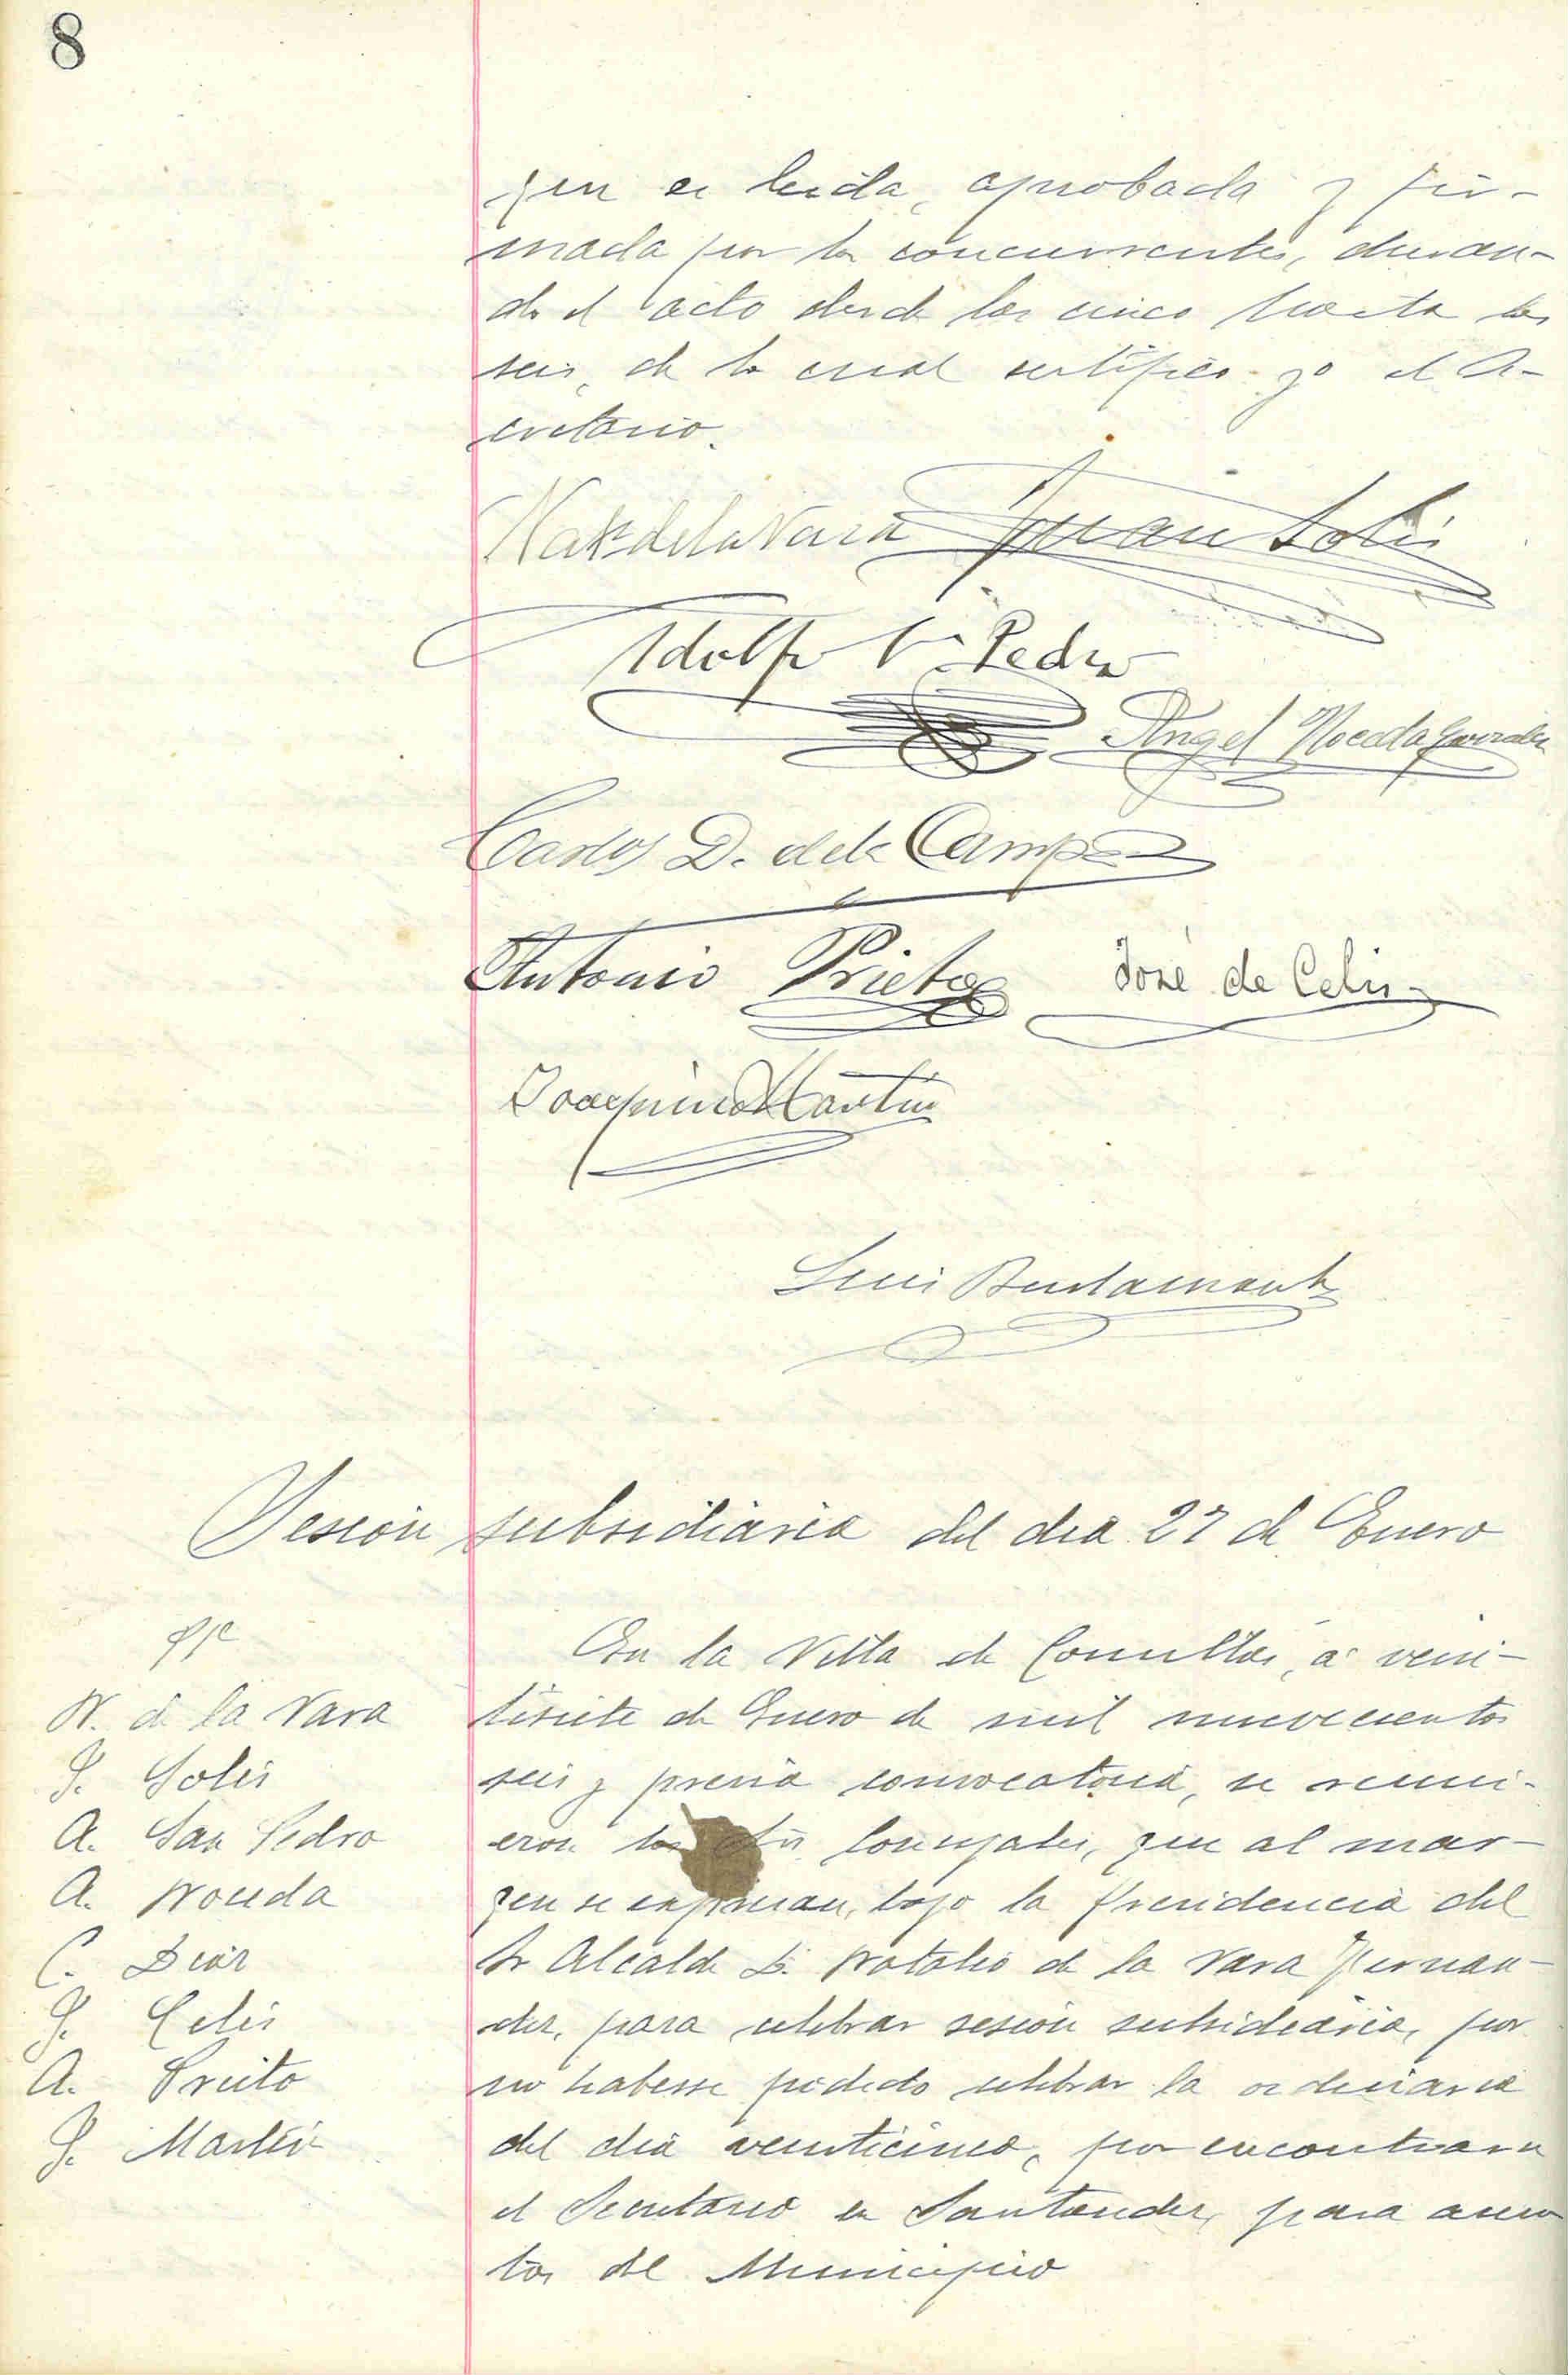 8
que es leida, aprobada y fir-
mada por los concurrentes, duran-
do el acto desde las cinco hasta las
seis, de lo cual certifico yo el Se-
cretario.
Nat de la Vara Juan Solis
Adolfo S. Pedro
Angel Noceda Gonzalez
Carlos D. de la Campa
Antonio Prieto José de Celis
Joaquin Martin
Luis Bustamante
Sesión subsidiaria del dia 27 de Enero
En la Villa de Comillas, á vein-
tisiete de Enero de mil novecientos
seis y previa convocatoria, se reuni-
eron los Concejales, que al mar-
gen se expresan, bajo la presidencia del
Sr Alcalde D. Natalio de la Vara Fernan-
dez, para celebrar sesión subsidiaria, por
no haberse podido celebrar la ordinaria
del dia veinticinco, por encontrarse
el Secretario en Santander, para asun-
tos del Municipio
N. de la Vara
J. Solis
A. San Pedro
A. Noceda
C. Diaz
J. Celis
A. Prieto
J. Martin